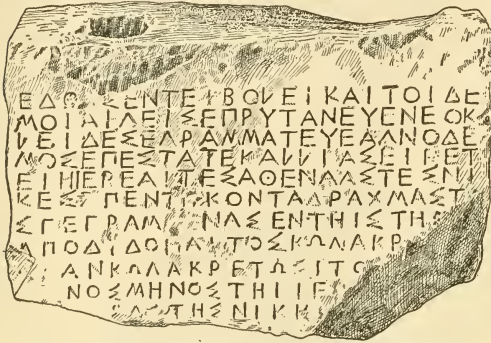 ΕΔΟΧΣΕΝΤΕΙΒΟΛΕΙΚΑΙΤΟΙΔΕ
ΜΟΙΑΙΓΕΙΣΕΠΡΥΤΑΝΕΥΕΝΕΟΚ
ΛΕΙΔΕΣΕΓΡΑΜΜΑΤΕΥΕΑΓΝΟΔΕ
ΜΟΣΕΠΕΣΤΑΤΕΚΑΛΛΙΑΣΕΙΠΕΤ
ΕΙΗΙΕΡΕΑΙΤΕΣΑΘΕΝΑΑΣΤΕΣΝΙ
ΚΕΣΠΕΝΤΕΚΟΝΤΑΔΡΑΧΜΑΣΤ
ΣΓΕΓΡΑΜ ΝΑΣΕΝΤΗΙΣΤΗ
ΑΠΟΔΙΔΟΝΑΙΤΟΣΚΩΛΑΚΡ
ΑΝΚΩΛΑΚΡΕΤΩΣΙΤΟ
ΝΟΣΜΗΝΟΣΤΗΙΙΕ
ΤΗΣΝΙΚΗ